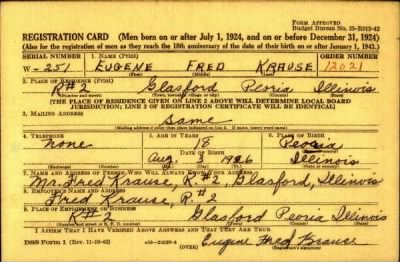 FORM APPROVED
Budget Bureau No. 33-R012-42
REGISTRATION CARD (Men born on or after July 1, 1924, and on or before December 31, 1924)
(Also for the registration of men as they reach the 18th anniversary of the date of their birth on or after January 1, 1943.)
SERIAL NUMBER 1. NAME (Print) ORDER NUMBER
W-251 EUGENE FRED KRAUSE 12021
(First) (Middle) (Last)
2. PLACE OF RESIDENCE (Print)
R#2 Glasford Peoria Illinois
(THE PLACE OF RESIDENCE GIVEN ON LINE 2 ABOVE WILL DETERMINE LOCAL BOARD
JURISDICTION; LINE 2 OF REGISTRATION CERTIFICATE WILL BE IDENTICAL)
3. MAILING ADDRESS
Same
(Mailing address if other than place indicated on line 2. If same, insert word same)
4. TELEPHONE 5. AGE IN YEARS 6. PLACE OF BIRTH
None 18 Peoria
DATE OF BIRTH
Aug. 3 1926 Illinois
(Exchange) (Number) (Mo.) (Day) (Yr.) (State or country)
7. NAME AND ADDRESS OF PERSON WHO WILL ALWAYS KNOW YOUR ADDRESS
Mr. Fred Krause, R.#2, Glasford, Illinois
8. EMPLOYER'S NAME AND ADDRESS
Fred Krause, R.#2
9. PLACE OF EMPLOYMENT OR BUSINESS
R#2 Glasford Peoria Illinois
I AFFIRM THAT I HAVE VERIFIED ABOVE ANSWERS AND THAT THEY ARE TRUE.
DSS Form 1 (Rev. 11-16-42) (OVER) Eugene Fred Krause
(Registrant's signature)